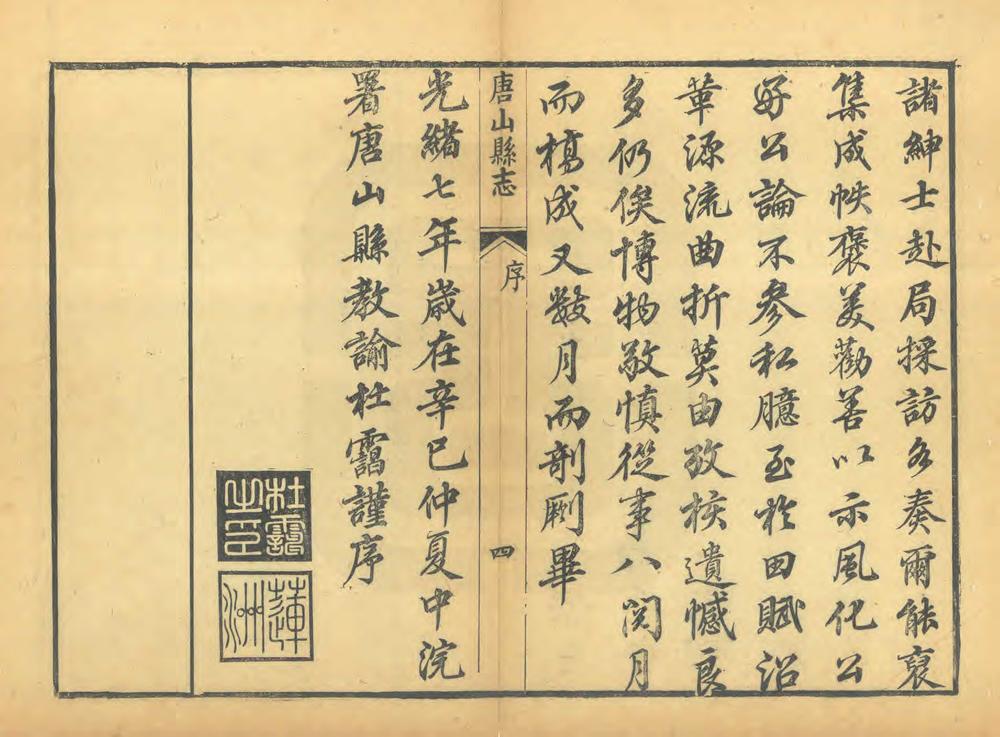 諸紳士赴局採訪各奏爾能裒
集成帙褒美勸善以示風化公
好公論不參私臆至於田賦沿
革源流曲折莫由攷核遺憾良
多仍俟博物敬慎從事八閱月
而槁成又數月而剞劂畢
唐山縣志
序
四
光緒七年歲在辛巳仲夏中浣
署唐山縣教諭杜靄謹序
杜靄之印
蓮洲